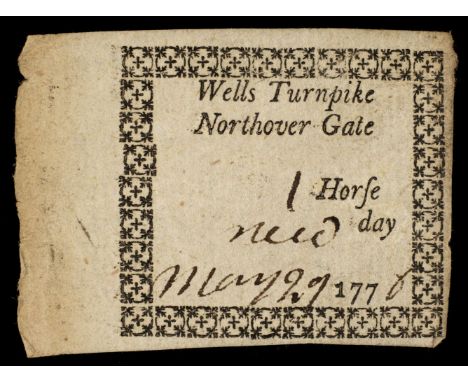 Wells Turnpike
Northover Gate
1 Horſe
wed day
May 29 1776